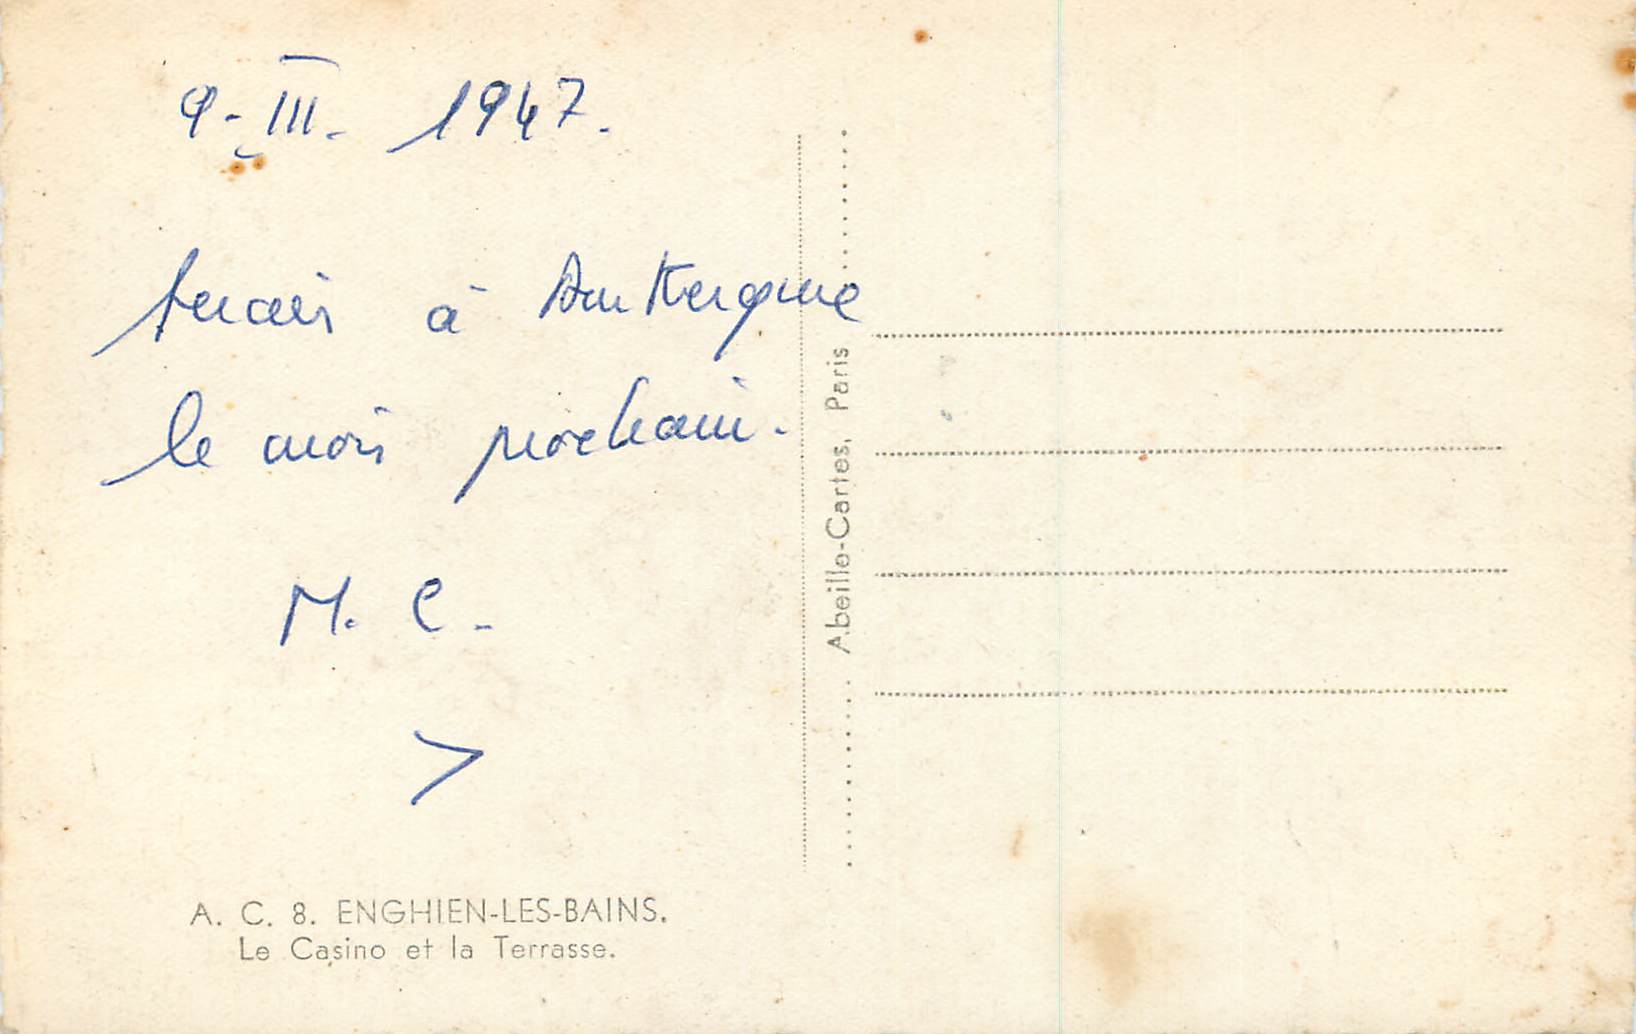 9-III. 1947.
serais à Dunkerque
le mois prochain.
M. C.
A. C. 8. ENGHIEN-LES-BAINS.
Le Casino et la Terrasse.
Abeille-Cartes, Paris